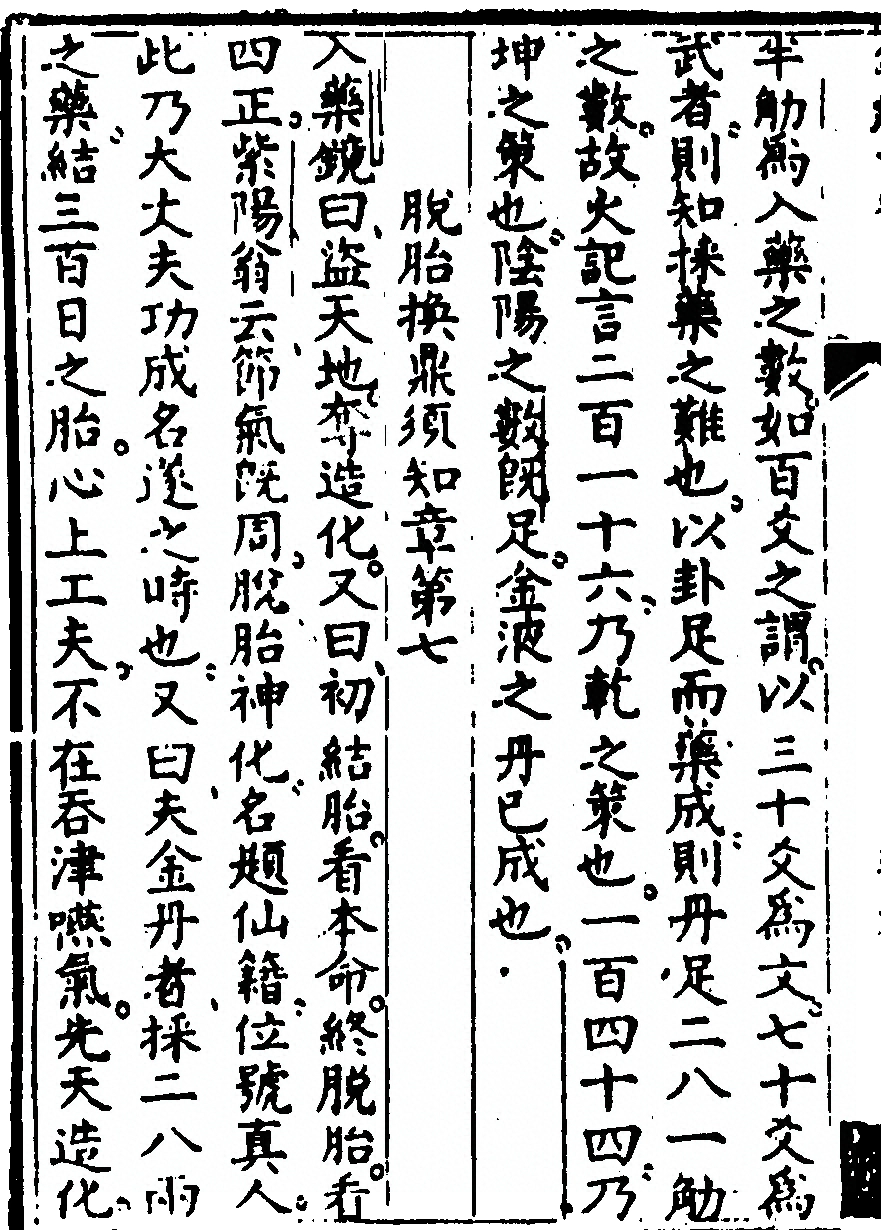 半觔爲入藥之數如百爻之謂以三十爻爲文七十爻爲
武者則知採藥之難也以卦足而藥成則丹足二八一觔
之數故火記言二百一十六乃乾之策也一百四十四乃
坤之策也陰陽之數旣足金液之丹已成也
脫胎換鼎須知章第七
入藥鏡曰盜天地奪造化又曰初結胎看本命終脫胎看
四正紫陽翁云節氣旣周脫胎神化名題仙籍位號真人
此乃大丈夫功成名遂之時也又曰夫金丹者採二八兩
之藥結三百日之胎心上工夫不在吞津嚥氣先天造化